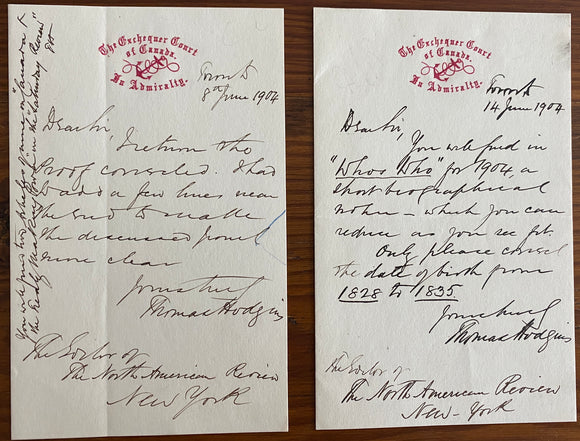 The Exchequer Court
of Canada.
In Admiralty.
Toronto
8th June 1904
Dear Sir,
I return the
Proof corrected. I had
to add a few lines near
the end to make
the discussed point
more clear
Yours truly
Thomas Hodgins
The Editor of
The North American Review
New York
You will find two phrases of mine on "Canada &
the Ready Mackay Ford" in the "Saturday Review"
The Exchequer Court
of Canada.
In Admiralty.
Toronto
14 June 1904
Dear Sir,
You will find in
"Who's Who" for 1904, a
short biographical
notice – which you can
reduce as you see fit.
Only please correct
the date of birth from
1828 to 1835
Yours truly
Thomas Hodgins
The Editor of
The North American Review
New-York